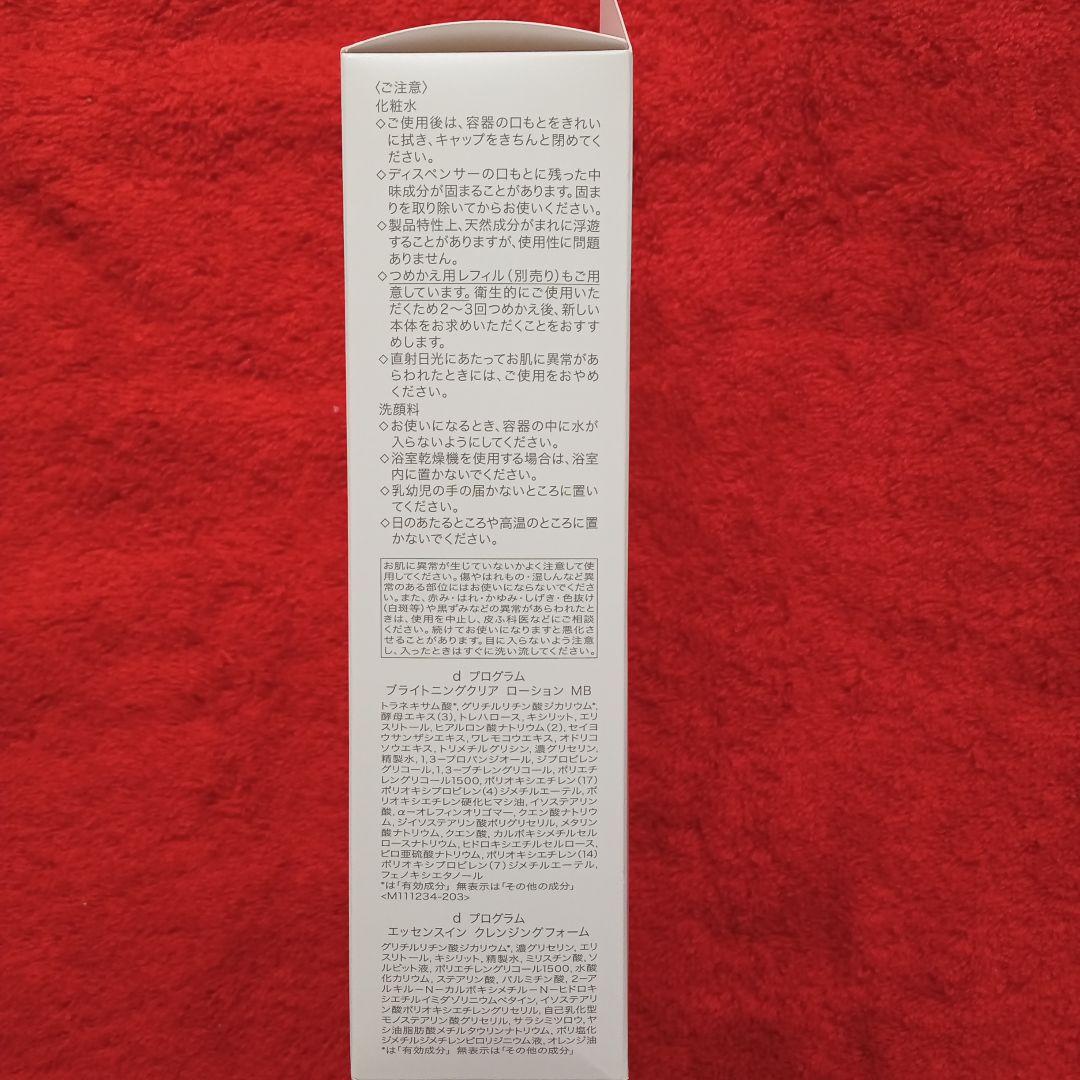 〈ご注意〉
化粧水
◇ご使用後は、容器の口もとをきれい
に拭き、キャップをきちんと閉めてく
ださい。
◇ディスペンサーの口もとに残った中
味成分が固まることがあります。固ま
りを取り除いてからお使いください。
◇製品特性上、天然成分がまれに浮遊
することがありますが、使用性に問題
ありません。
◇つめかえ用レフィル(別売り)もご用
意しています。衛生的にご使用いた
だくため2〜3回つめかえ後、新しい
本体をお求めいただくことをおすす
めします。
◇直射日光にあたってお肌に異常があ
らわれたときには、ご使用をおやめ
ください。
洗顔料
◇お使いになるとき、容器の中に水が
入らないようにしてください。
◇浴室乾燥機を使用する場合は、浴室
内に置かないでください。
◇乳幼児の手の届かないところに置い
てください。
◇日のあたるところや高温のところに置
かないでください。
お肌に異常が生じていないかよく注意して使
用してください。傷やはれもの・湿しんなど異
常のある部位にはお使いにならないでくださ
い。また、赤み・はれ・かゆみ・しげき・色抜け
(白斑等)や黒ずみなどの異常があらわれたと
きは、使用を中止し、皮ふ科医などにご相談
ください。続けてお使いになりますと悪化さ
せることがあります。目に入らないよう注意
し、入ったときはすぐに洗い流してください。
d プログラム
ブライトニングクリア ローション MB
トラネキサム酸*, グリチルリチン酸ジカリウム*,
酵母エキス(3), トレハロース, キシリット, エリ
スリトール, ヒアルロン酸ナトリウム(2), セイヨ
ウサンザシエキス, ワレモコウエキス, オドリコ
ソウエキス, トリメチルグリシン, 濃グリセリン,
精製水, 1,3-プロパンジオール, ジプロピレン
グリコール, 1,3-ブチレングリコール, ポリエチ
レングリコール1500, ポリオキシエチレン(17)
ポリオキシプロピレン(4)ジメチルエーテル, ポ
リオキシエチレン硬化ヒマシ油, イソステアリン
酸, α-オレフィンオリゴマー, クエン酸ナトリウ
ム, ジイソステアリン酸ポリグリセリル, メタリン
酸ナトリウム, クエン酸, カルボキシメチルセル
ロースナトリウム, ヒドロキシエチルセルロース,
ピロ亜硫酸ナトリウム, ポリオキシエチレン(14)
ポリオキシプロピレン(7)ジメチルエーテル,
フェノキシエタノール
*は「有効成分」 無表示は「その他の成分」
<M111234-203>
d プログラム
エッセンスイン クレンジングフォーム
グリチルリチン酸ジカリウム*, 濃グリセリン, エリ
スリトール, キシリット, 精製水, ミリスチン酸, ソ
ルビット液, ポリエチレングリコール1500, 水酸
化カリウム, ステアリン酸, パルミチン酸, 2-ア
ルキル-N-カルボキシメチル-N-ヒドロキ
シエチルイミダゾリニウムベタイン, イソステアリ
ン酸ポリオキシエチレングリセリル, 自己乳化型
モノステアリン酸グリセリル, サラシミツロウ, ヤ
シ油脂肪酸メチルタウリンナトリウム, ポリ塩化
ジメチルジメチレンピロリジニウム液, オレンジ油
*は「有効成分」 無表示は「その他の成分」